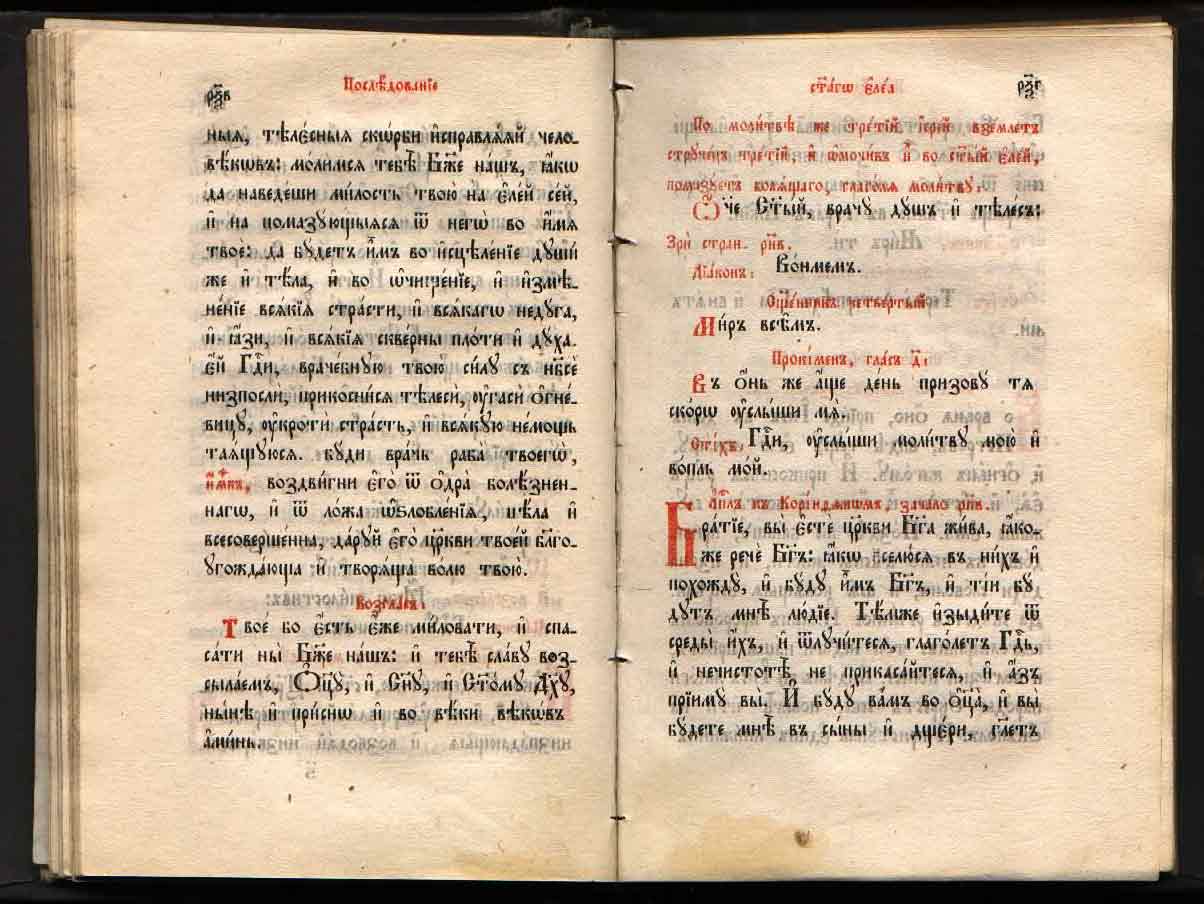 рѯв
Послѣдованїе
ныѧ, тѣлє́сныѧ скѡ́рби и҆справлѧ́ѧй чело-
вѣ́кѡвъ: мо́лимсѧ тебѣ̀ Бж҃е нашъ, ꙗ҆́кѡ
да наведе́ши ми́лость твою̀ на є҆ле́й се́й,
и҆ на помазꙋющыѧсѧ ѿ негѡ̀ во и҆́мѧ
твоѐ: да бꙋ́детъ и҆̀мъ во и҆сцѣле́нїе дꙋшѝ
же и҆ тѣ́ла, и҆ во ѡ҆чище́нїе, и҆ и҆змѣ-
не́нїе всѧ́кїѧ стра́сти, и҆ всѧ́кагѡ недꙋ́га,
и҆ ꙗ҆́зи, и҆ всѧ́кїѧ скве́рны пло́ти и҆ дꙋ́ха.
є҆́й Гдⷭ҇и, враче́бнꙋю твою̀ си́лꙋ съ нб҃сѐ
низпослѝ, прикосни́сѧ тѣлесѝ, ᲂу҆гасѝ ѻ҆гне-
ви́цꙋ, ᲂу҆кротѝ стра́сть, и҆ всѧ́кꙋю не́мощь
таѧ́щꙋюсѧ. бꙋди вра́чь раба̀ твоегѡ̀,
и҆́м҃къ, воздви́гни є҆го̀ ѿ ѻ҆дра̀ болѣ́знен-
нагѡ, и҆ ѿ ло́жа ѡ҆ѕлобле́нїѧ, цѣ́ла и҆
всесоверше́нна, да́рꙋй є҆го̀ цр҃кви твое́й бл҃го-
ꙋгожда́юща и҆ творѧ́ща во́лю твою̀.
Возгласъ:
Твоѐ бо є҆́сть є҆́же ми́ловати, и҆ спа-
са́ти ны̀ Бж҃е нашъ: и҆ тебѣ̀ сла́вꙋ воз-
сыла́емъ, Ѻ҆ц҃ꙋ̀, и҆ Сн҃ꙋ, и҆ Ст҃о́мꙋ Дх҃ꙋ,
ны́нѣ и҆ при́снѡ и҆ во вѣ́ки вѣкѡ́въ
а҆ми́нь.
ст҃а́гѡ є҆ле́а
рѯг
По моли́твѣ же тре́тїй і҆ере́й взе́млетъ
стрꙋче́цъ тре́тїй, и҆ ѡ҆мочи́въ и҆̀ во ст҃ы́й є҆ле́й,
пома́зꙋетъ болѧ́щаго, глаго́лѧ моли́твꙋ:
Ѻ҆́ч҃е Ст҃ы́й, врачꙋ̀ дꙋ́шъ и҆ тѣле́съ:
Зрѝ стран. рн҃в.
Дїа́конъ: Во́нмемъ.
Сщ҃е́нникъ четве́ртый
Ми́ръ всѣ́мъ.
Прокі́менъ, гла́съ д҃:
Въ ѻ҆́нь же а҆́ще де́нь призовꙋ̀ тѧ̀
ско́рѡ ᲂу҆слы́ши мѧ̀.
Сті́хъ, Гдⷭ҇и, ᲂу҆слы́ши моли́твꙋ мою̀ и҆
во́пль мо́й.
А҆пⷭ҇лъ къ Корі́нѳѧнѡмъ, зача́ло рп҃в.
Бра́тїе, вы̀ є҆стѐ цр҃кви Бг҃а жи́ва, ꙗ҆́ко-
же речѐ Бг҃ъ: ꙗ҆́кѡ вселю́сѧ въ ни́хъ и҆
похождꙋ̀, и҆ бꙋ́дꙋ и҆́мъ Бг҃ъ, и҆ ті́и бꙋ
дꙋтъ мнѣ̀ лю́дїе. Тѣ́мже и҆зыди́те ѿ
среды̀ и҆́хъ, и҆ ѿлꙋчи́тесѧ, глаго́летъ Гдⷭ҇ь,
и҆ нечистотѣ̀ не прикаса́йтесѧ, и҆ а҆́зъ
прїимꙋ̀ вы̀. И҆ бꙋ́дꙋ ва́мъ во ѻ҆ц҃а̀, и҆ вы̀
бꙋ́дете мнѣ̀ въ сы́ны и҆ дще́ри, гл҃етъ